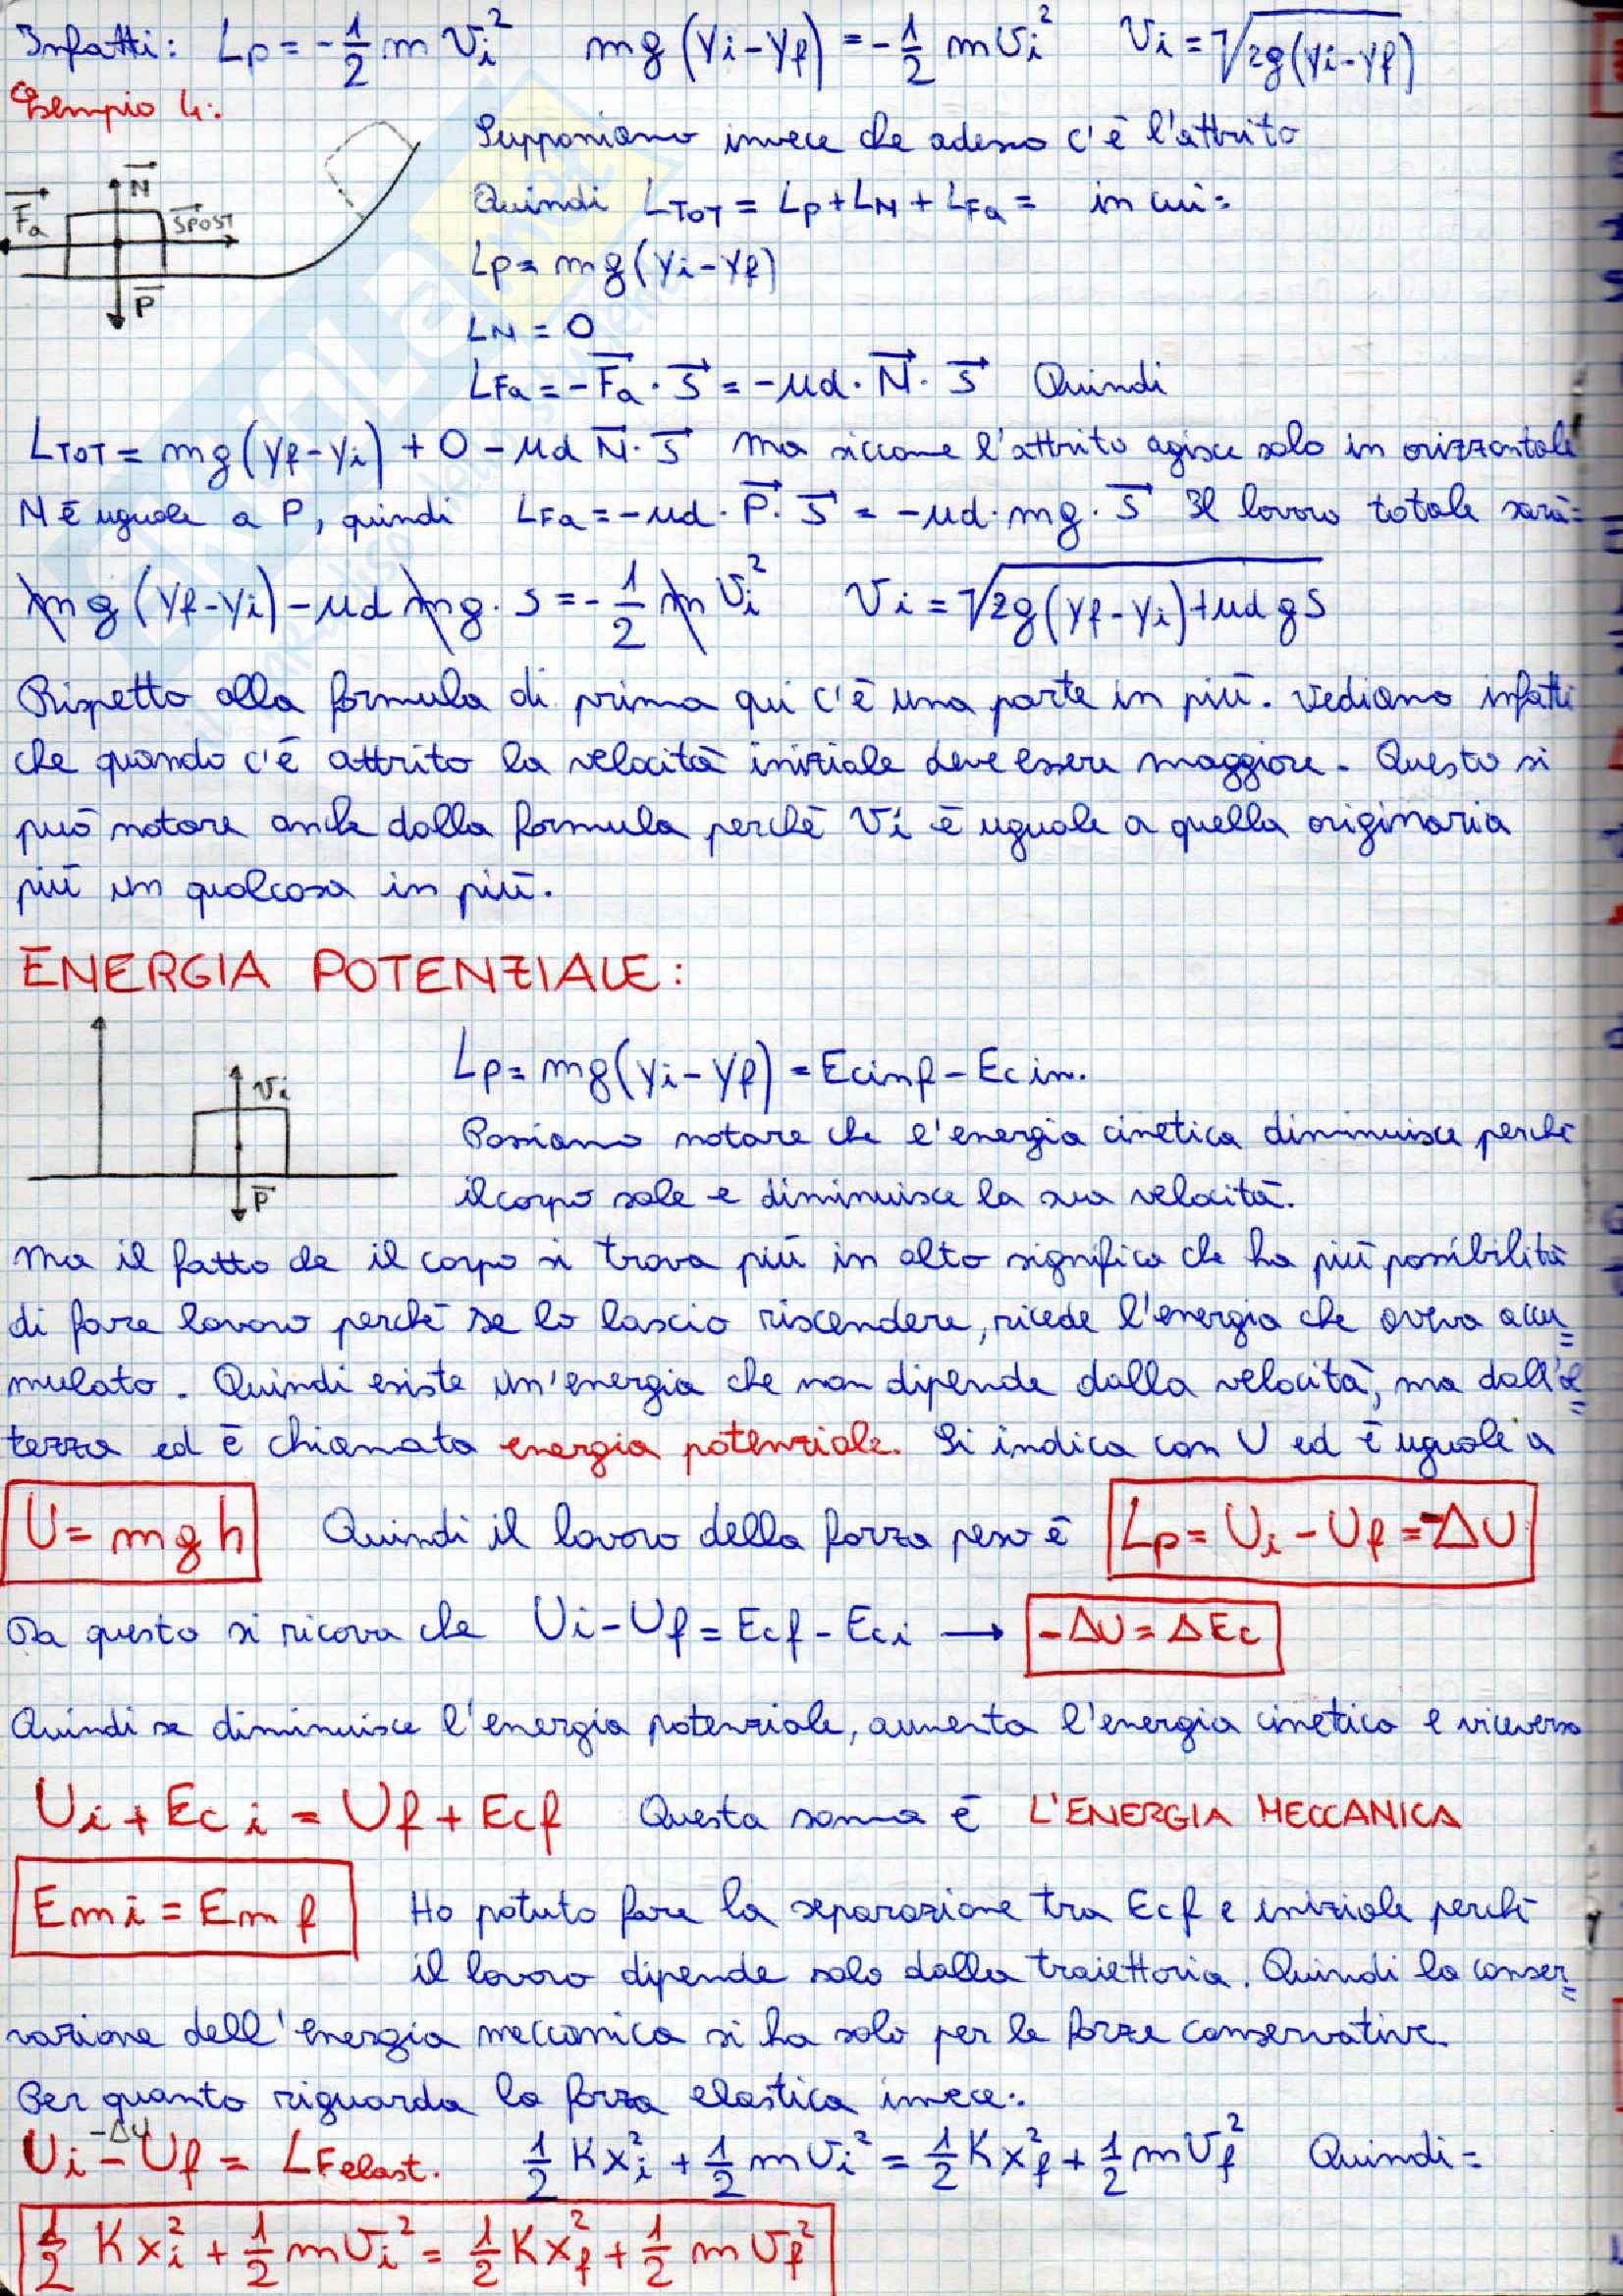 Infatti: Lp = -1/2 m Vi² mg (Yi-Yf) = -1/2 mVi² Vi = √2g(Yi-Yf)
Esempio 4:
Supponiamo invece che adesso c'è l'attrito
N
Fa
SPOST
P
Quindi LTOT = LP + LN + LFa = in cui:
Lp = mg(Yi-Yf)
LN = 0
LFa = -Fa · S = -μd · N · S Quindi
LTOT = mg(Yf-Yi) + 0 - μd N · S Ma siccome l'attrito agisce solo in orizzontale
N è uguale a P, quindi LFa = -μd · P · S = -μd · mg · S Il lavoro totale sarà:
mg (Yf-Yi) - μd mg · S = -1/2 m Vi² Vi = √2g(Yf-Yi)+μd gS
Rispetto alla formula di prima qui c'è una parte in più. Vediamo infatti
che quando c'è attrito la velocità iniziale deve essere maggiore. Questo si
può notare anche dalla formula perchè Vi è uguale a quella originaria
più un qualcosa in più.
ENERGIA POTENZIALE:
Vi
P
Lp = mg(Yi-Yf) = Ecinf - Ecin.
Possiamo notare che l'energia cinetica diminuisce perchè
il corpo sale e diminuisce la sua velocità.
Ma il fatto che il corpo si trova più in alto significa che ha più possibilità
di fare lavoro perchè se lo lascio riscendere, ricede l'energia che aveva accu=
mulato. Quindi esiste un'energia che non dipende dalla velocità, ma dall'al=
tezza ed è chiamata energia potenziale. Si indica con U ed è uguale a
U = mgh Quindi il lavoro della forza peso è Lp = Ui - Uf = -ΔU
Da questo si ricava che Ui - Uf = Ecf - Eci → -ΔU = ΔEc
Quindi se diminuisce l'energia potenziale, aumenta l'energia cinetica e viceversa
Ui + Eci = Uf + Ecf Questa somma è L'ENERGIA MECCANICA
Emi = Emf Ho potuto fare la separazione tra Ecf e iniziale perchè
il lavoro dipende solo dalla traiettoria. Quindi la conser=
vazione dell'energia meccanica si ha solo per le forze conservative.
Per quanto riguarda la forza elastica invece:
-ΔU
Ui - Uf = LFelast. 1/2 Kxi² + 1/2 mVi² = 1/2 Kxf² + 1/2 mVf² Quindi =
1/2 Kxi² + 1/2 mVi² = 1/2 Kxf² + 1/2 mVf²